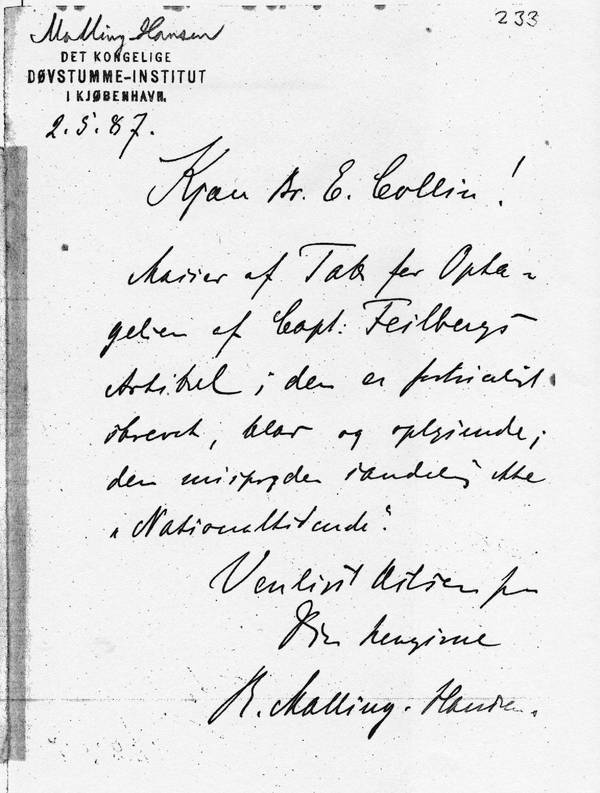 233
Malling-Hansen
DET KONGELIGE
DØVSTUMME-INSTITUT
I KJØBENHAVN.
2.5.87.
Kjære Dr. E. Collin!
Masser af Tak for Opta-
gelsen af Capt: Feilbergs
Artikel; den er fortrinligt
skrevet, klar og oplysende;
den mispryder sandelig ikke
„Nationaltidende“.
Venligst Hilsen fra
Din hengivne
R. Malling-Hansen.